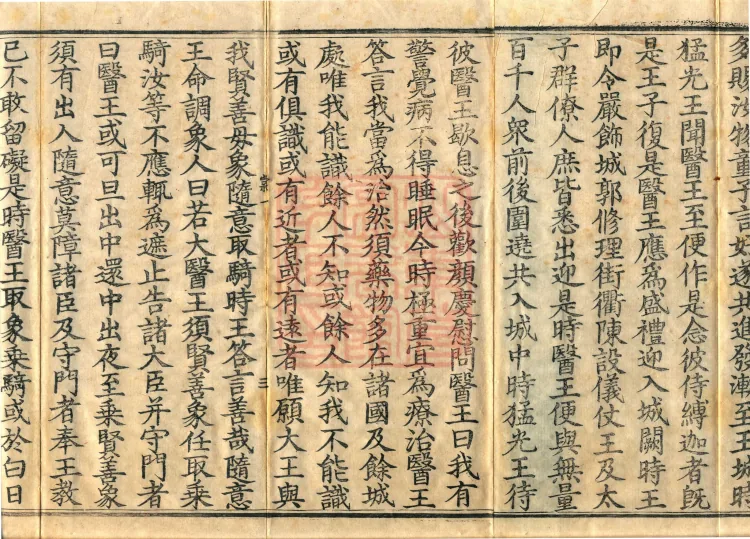 多賜治物童子言好遂共進發漸至王城時
猛光王聞醫王至便作是念彼侍縛迦者既
是王子復是醫王應爲盛禮迎入城闕時王
即令嚴飾城郭修理街衢陳設儀仗王及太
子群僚人庶皆悉出迎是時醫王便與無量
百千人衆前後圍遶共入城中時猛光王待
彼醫王歇息之後歡顔慶慰問醫王曰我有
警覺病不得睡眠今時極重宜爲療治醫王
答言我當爲治然須藥物多在諸國及餘城
處唯我能識餘人不知或餘人知我不能識
或有俱識或有近者或有遠者唯願大王與
我賢善母象隨意取騎時王答言善哉隨意
王命調象人曰若大醫王須賢善象任取乘
騎汝等不應輒爲遮止告諸大臣并守門者
曰醫王或可旦出中還中出夜至乘賢善象
須有出入隨意莫障諸臣及守門者奉王教
已不敢留礙是時醫王取象乘騎或於白日
三